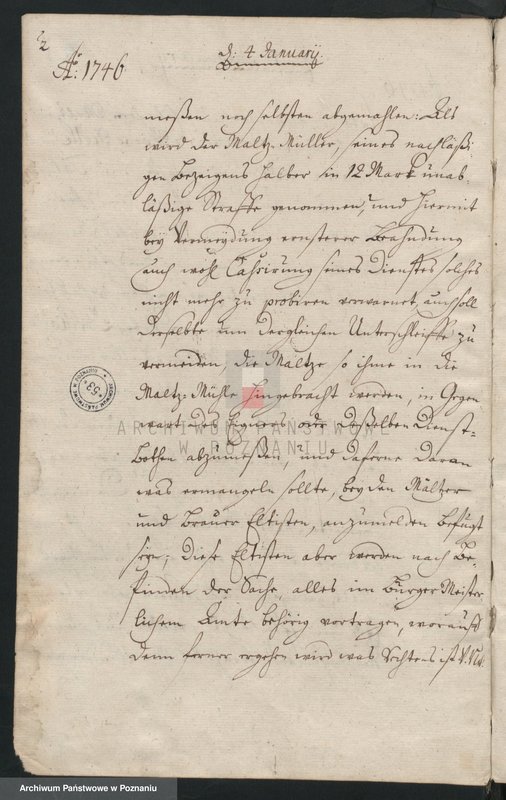 ½
Aō: 1746
d: 4 January
meßen noch selbsten abgemahlen: Als
wird der Maltz-Müller, seines nachläßi-
gen Bezeigens halber in 12 Mark unab-
läßige Straffe genommen, und hiermit
bey Vermeydung ernsterer Beahndung
auch wohl Cassirung seines Dienstes solches
nicht mehr zu probiren verwarnet, auch soll
derselbte um dergleichen Unterschleiffe zu
vermeiden, die Maltze so ihme in die
Maltz-Mühle hingebracht werden, in Gegen
wart des Eigners oder deßelben Dienst-
Bothen abzumeßen, und daferne daran
was ermangeln sollte, bey den Mältzer
und Brauer Eltisten, anzumelden befugt
seyn; diese Eltisten aber werden nach Be-
finden der Sache, alles im Bürger Meister-
lichem Amte behörig vortragen, worauf
denn ferner ergehen wird was Rechtens ist V.R.W.
ARCHIWUM PAŃSTWOWE
W POZNANIU
53
Archiwum Państwowe w Poznaniu